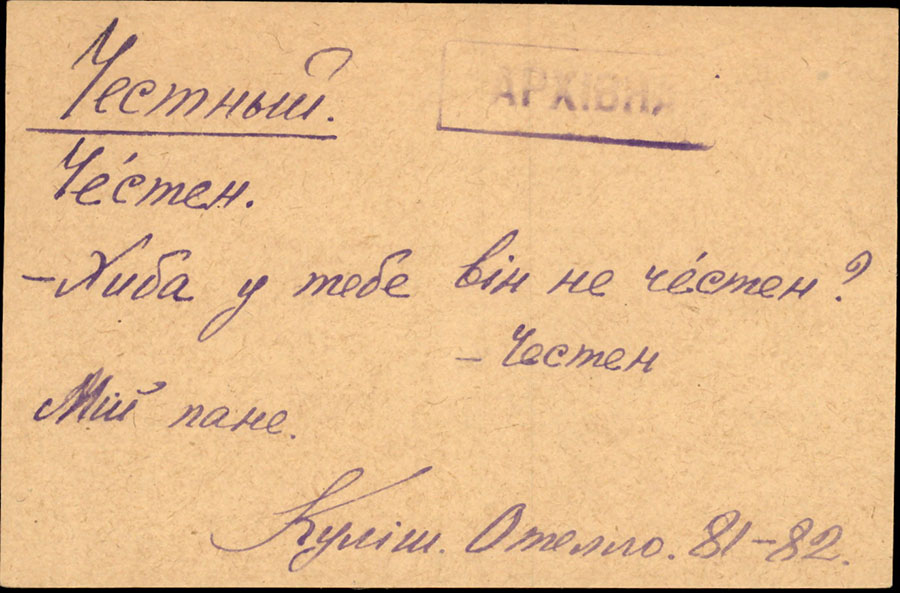 Честный.
АРХІВНА
Че́стен.
–Хиба у тебе він не че́стен?
– Честен
Мій пане.
Куліш. Отелло. 81–82.